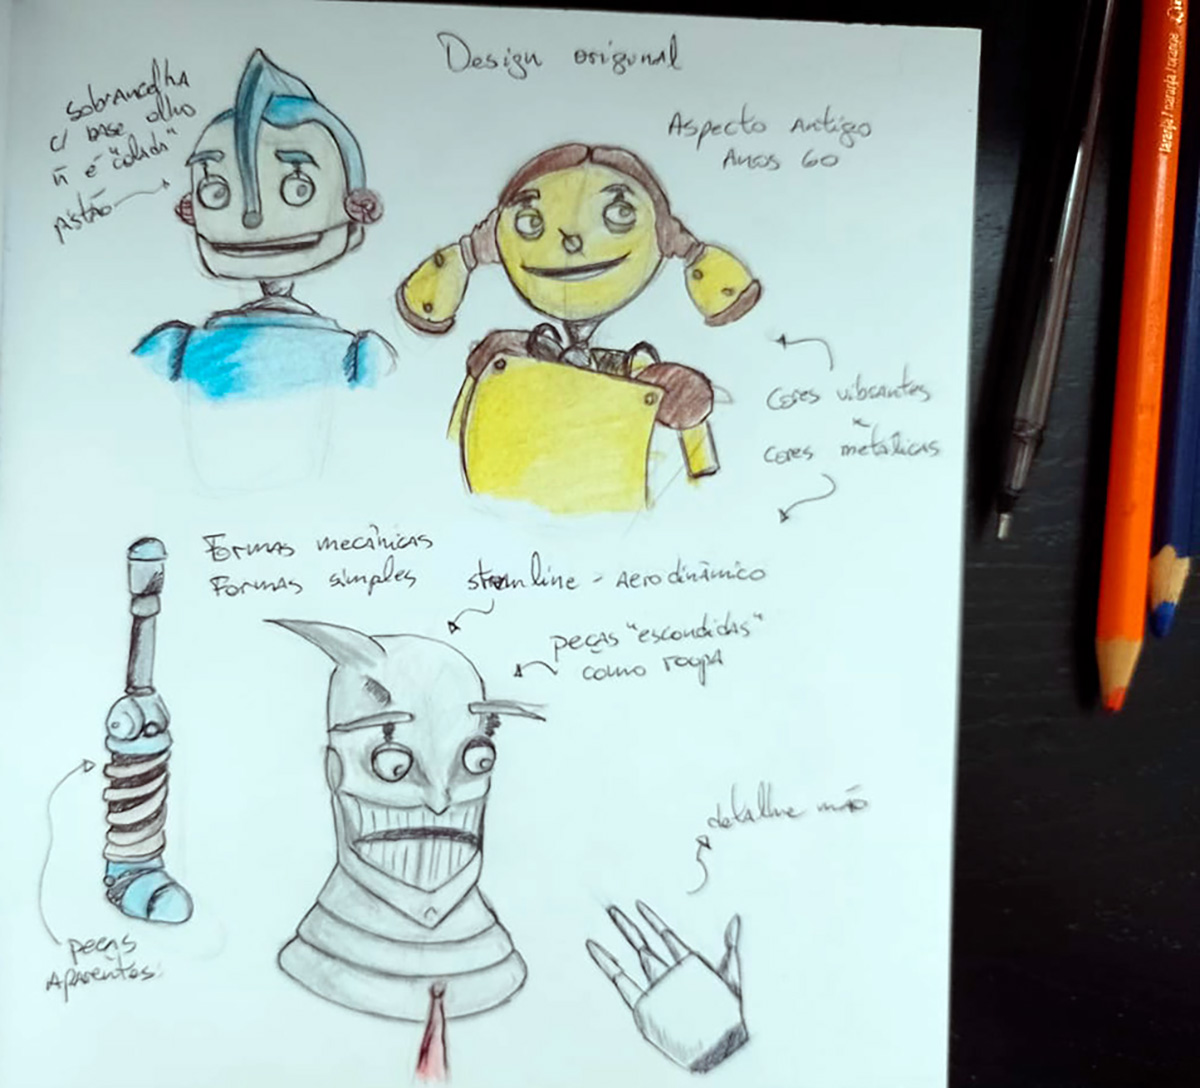 Design original
sobrancelha
c/ base olho
ñ é "colada"
pistão
Aspecto Antigo
Anos 60
cores vibrantes
x
cores metálicas
Formas mecânicas
Formas simples
streamline - Aerodinâmico
peças "escondidas"
como roupa
detalhe mão
peças
Aparentes
laranja / naranja / orange